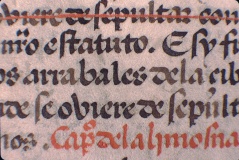 oviere de sepultar con
mr̃o estatuto. E sy fu
os arrabales dela cib
de se oviere de sepult
nos. Cap̃. dela limosna